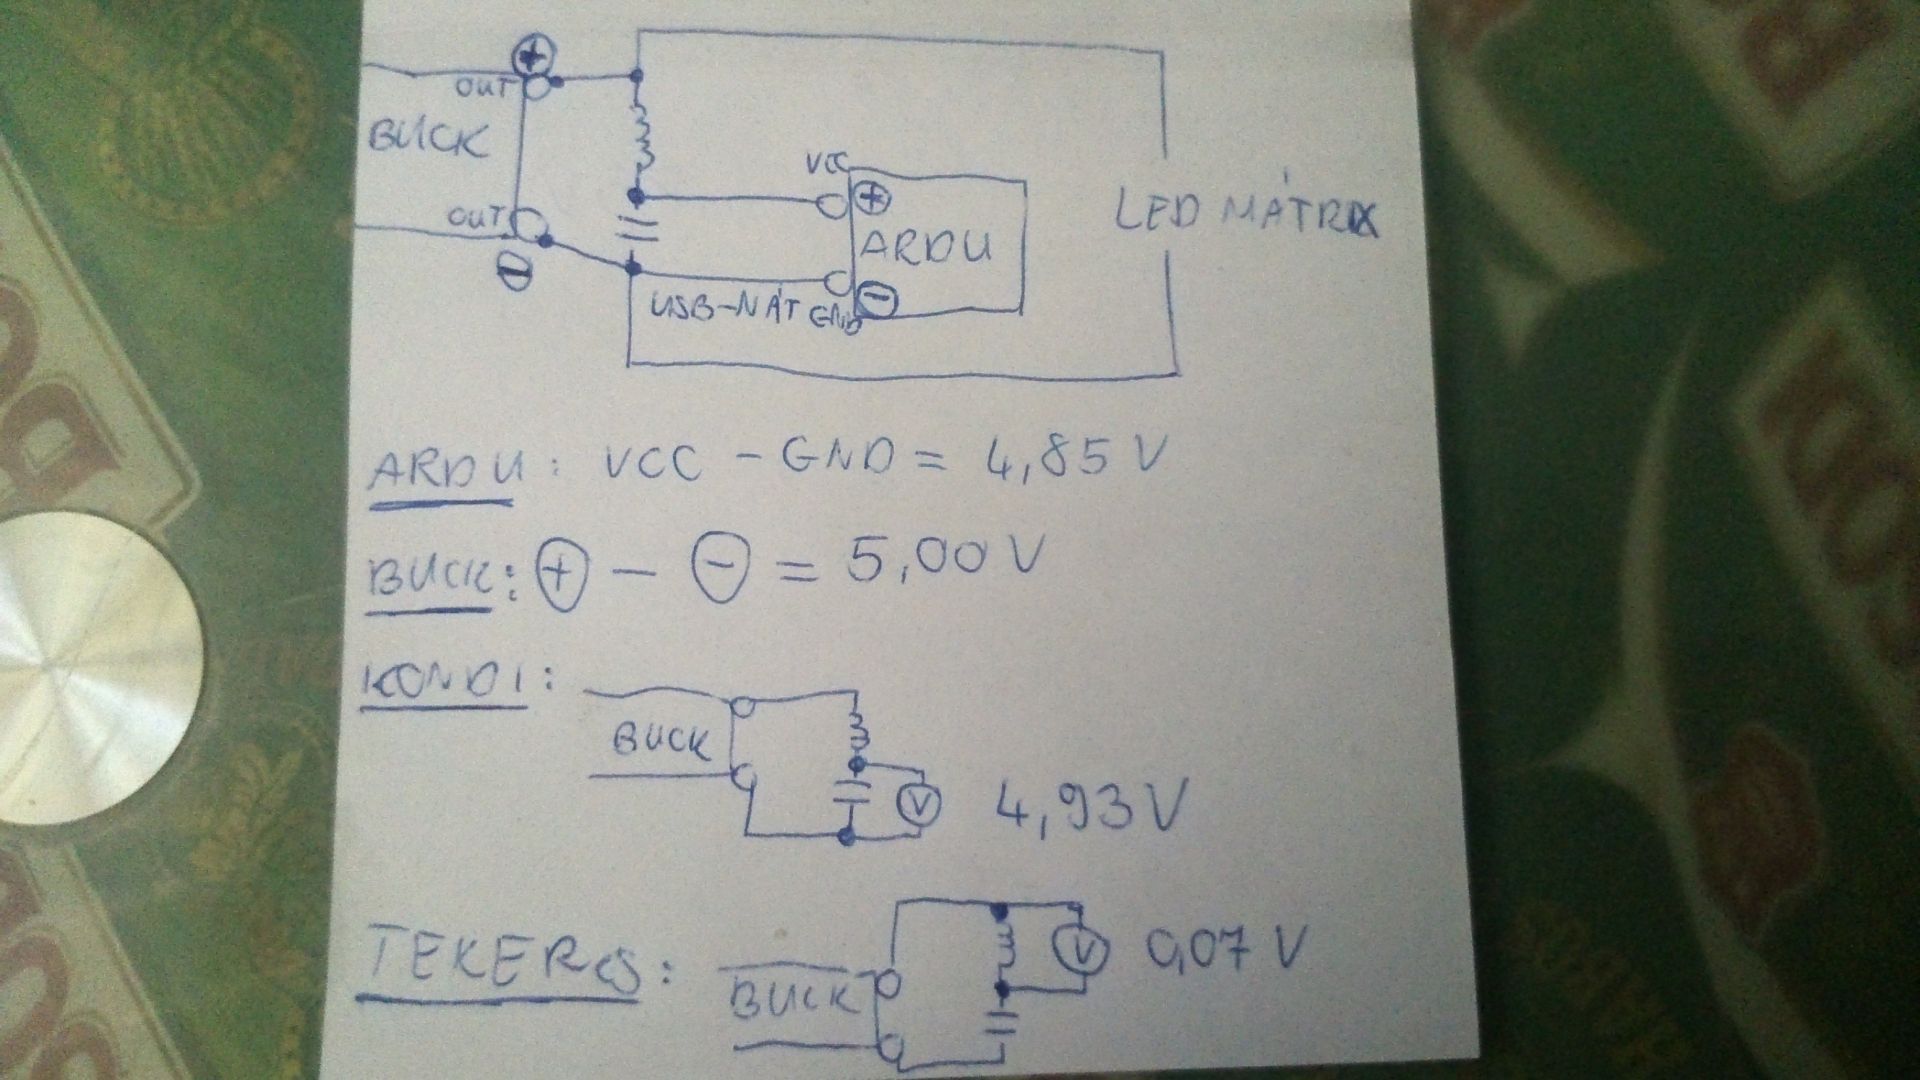 ⊕
OUT
BUCK
VCC
⊕
LED MÁTRIX
OUT
ARDU
⊖
USB-NÁT GND
⊖
ARDU: VCC - GND = 4,85 V
BUCK: ⊕ - ⊖ = 5,00 V
KONDI:
BUCK
V
4,93 V
TEKERCS:
BUCK
V
0,07 V